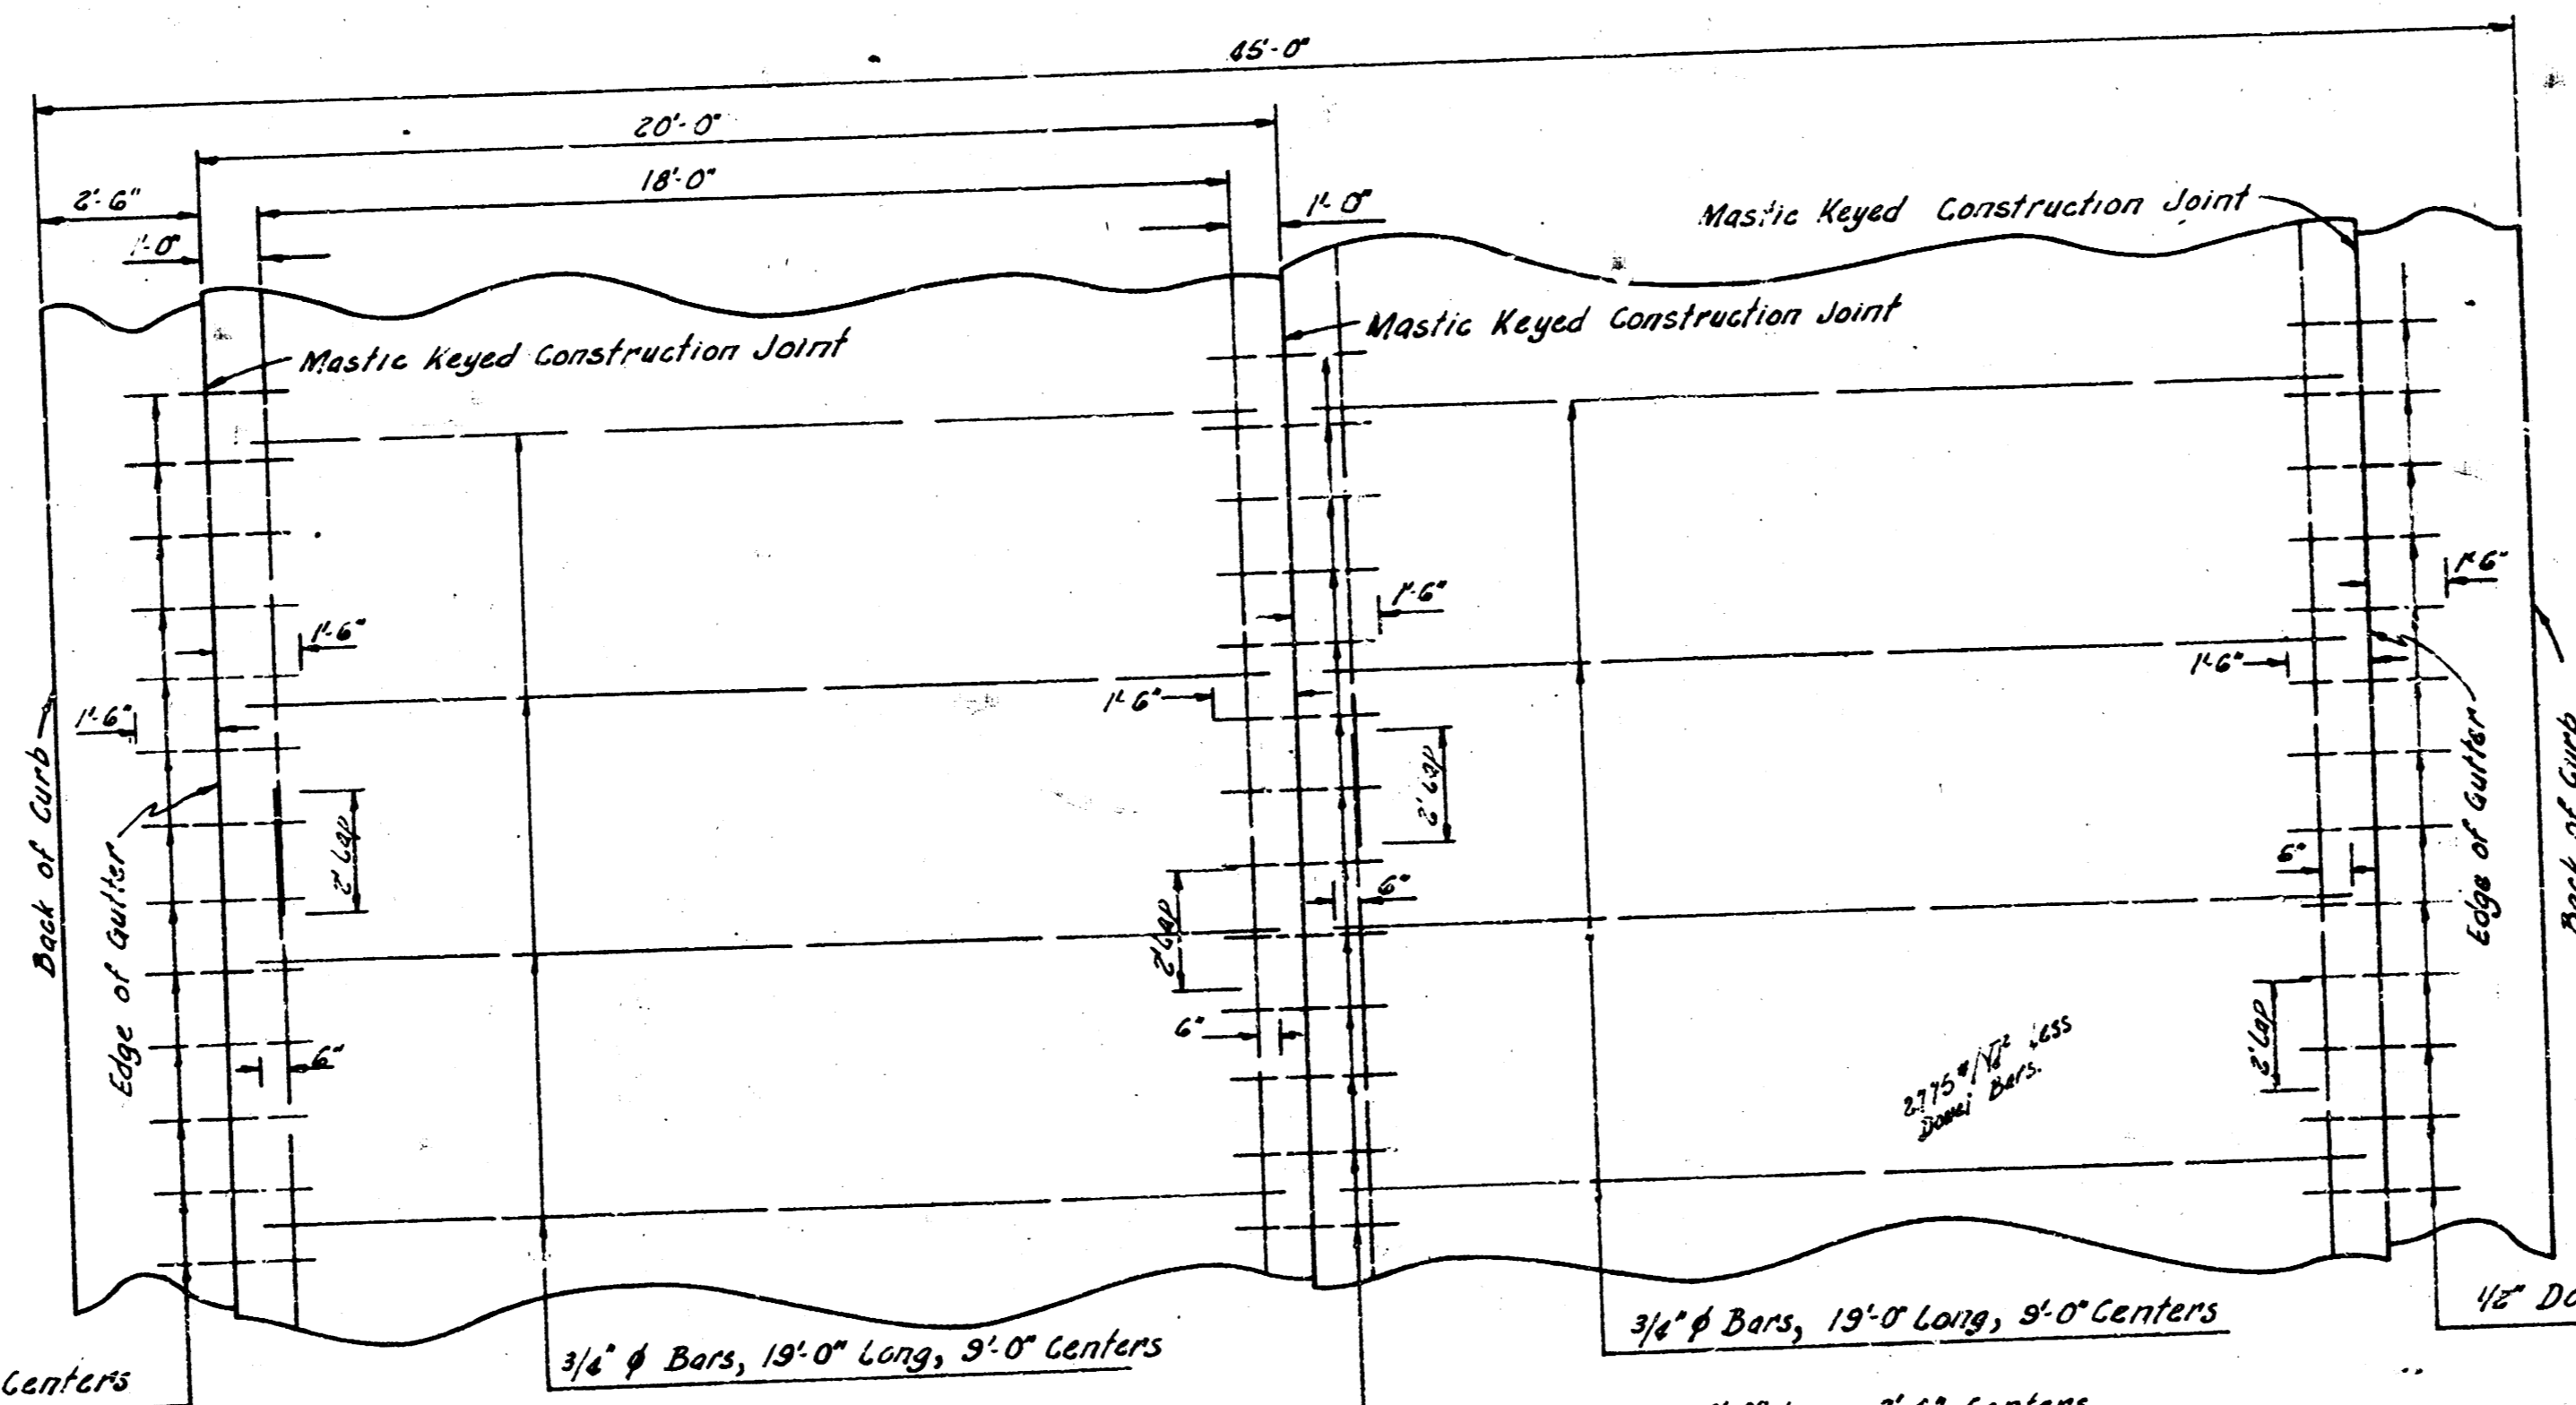 45'-0"
20'-0"
18'-0"
2'-6"
1'-0"
1'-0"
Mastic Keyed Construction Joint
Mastic Keyed Construction Joint
Mastic Keyed Construction Joint
1'-6"
1'-6"
1'-6"
1'-6"
1'-6"
1'-6"
Back of Curb
Edge of Gutter
2' Lap
2' Lap
2' Lap
2' Lap
6"
6"
6"
6"
Edge of Gutter
Back of Curb
Less
Bars.
3/4" ϕ Bars, 19'-0" Long, 9'-0" Centers
3/4" ϕ Bars, 19'-0" Long, 9'-0" Centers
1/2"
Centers
Centers